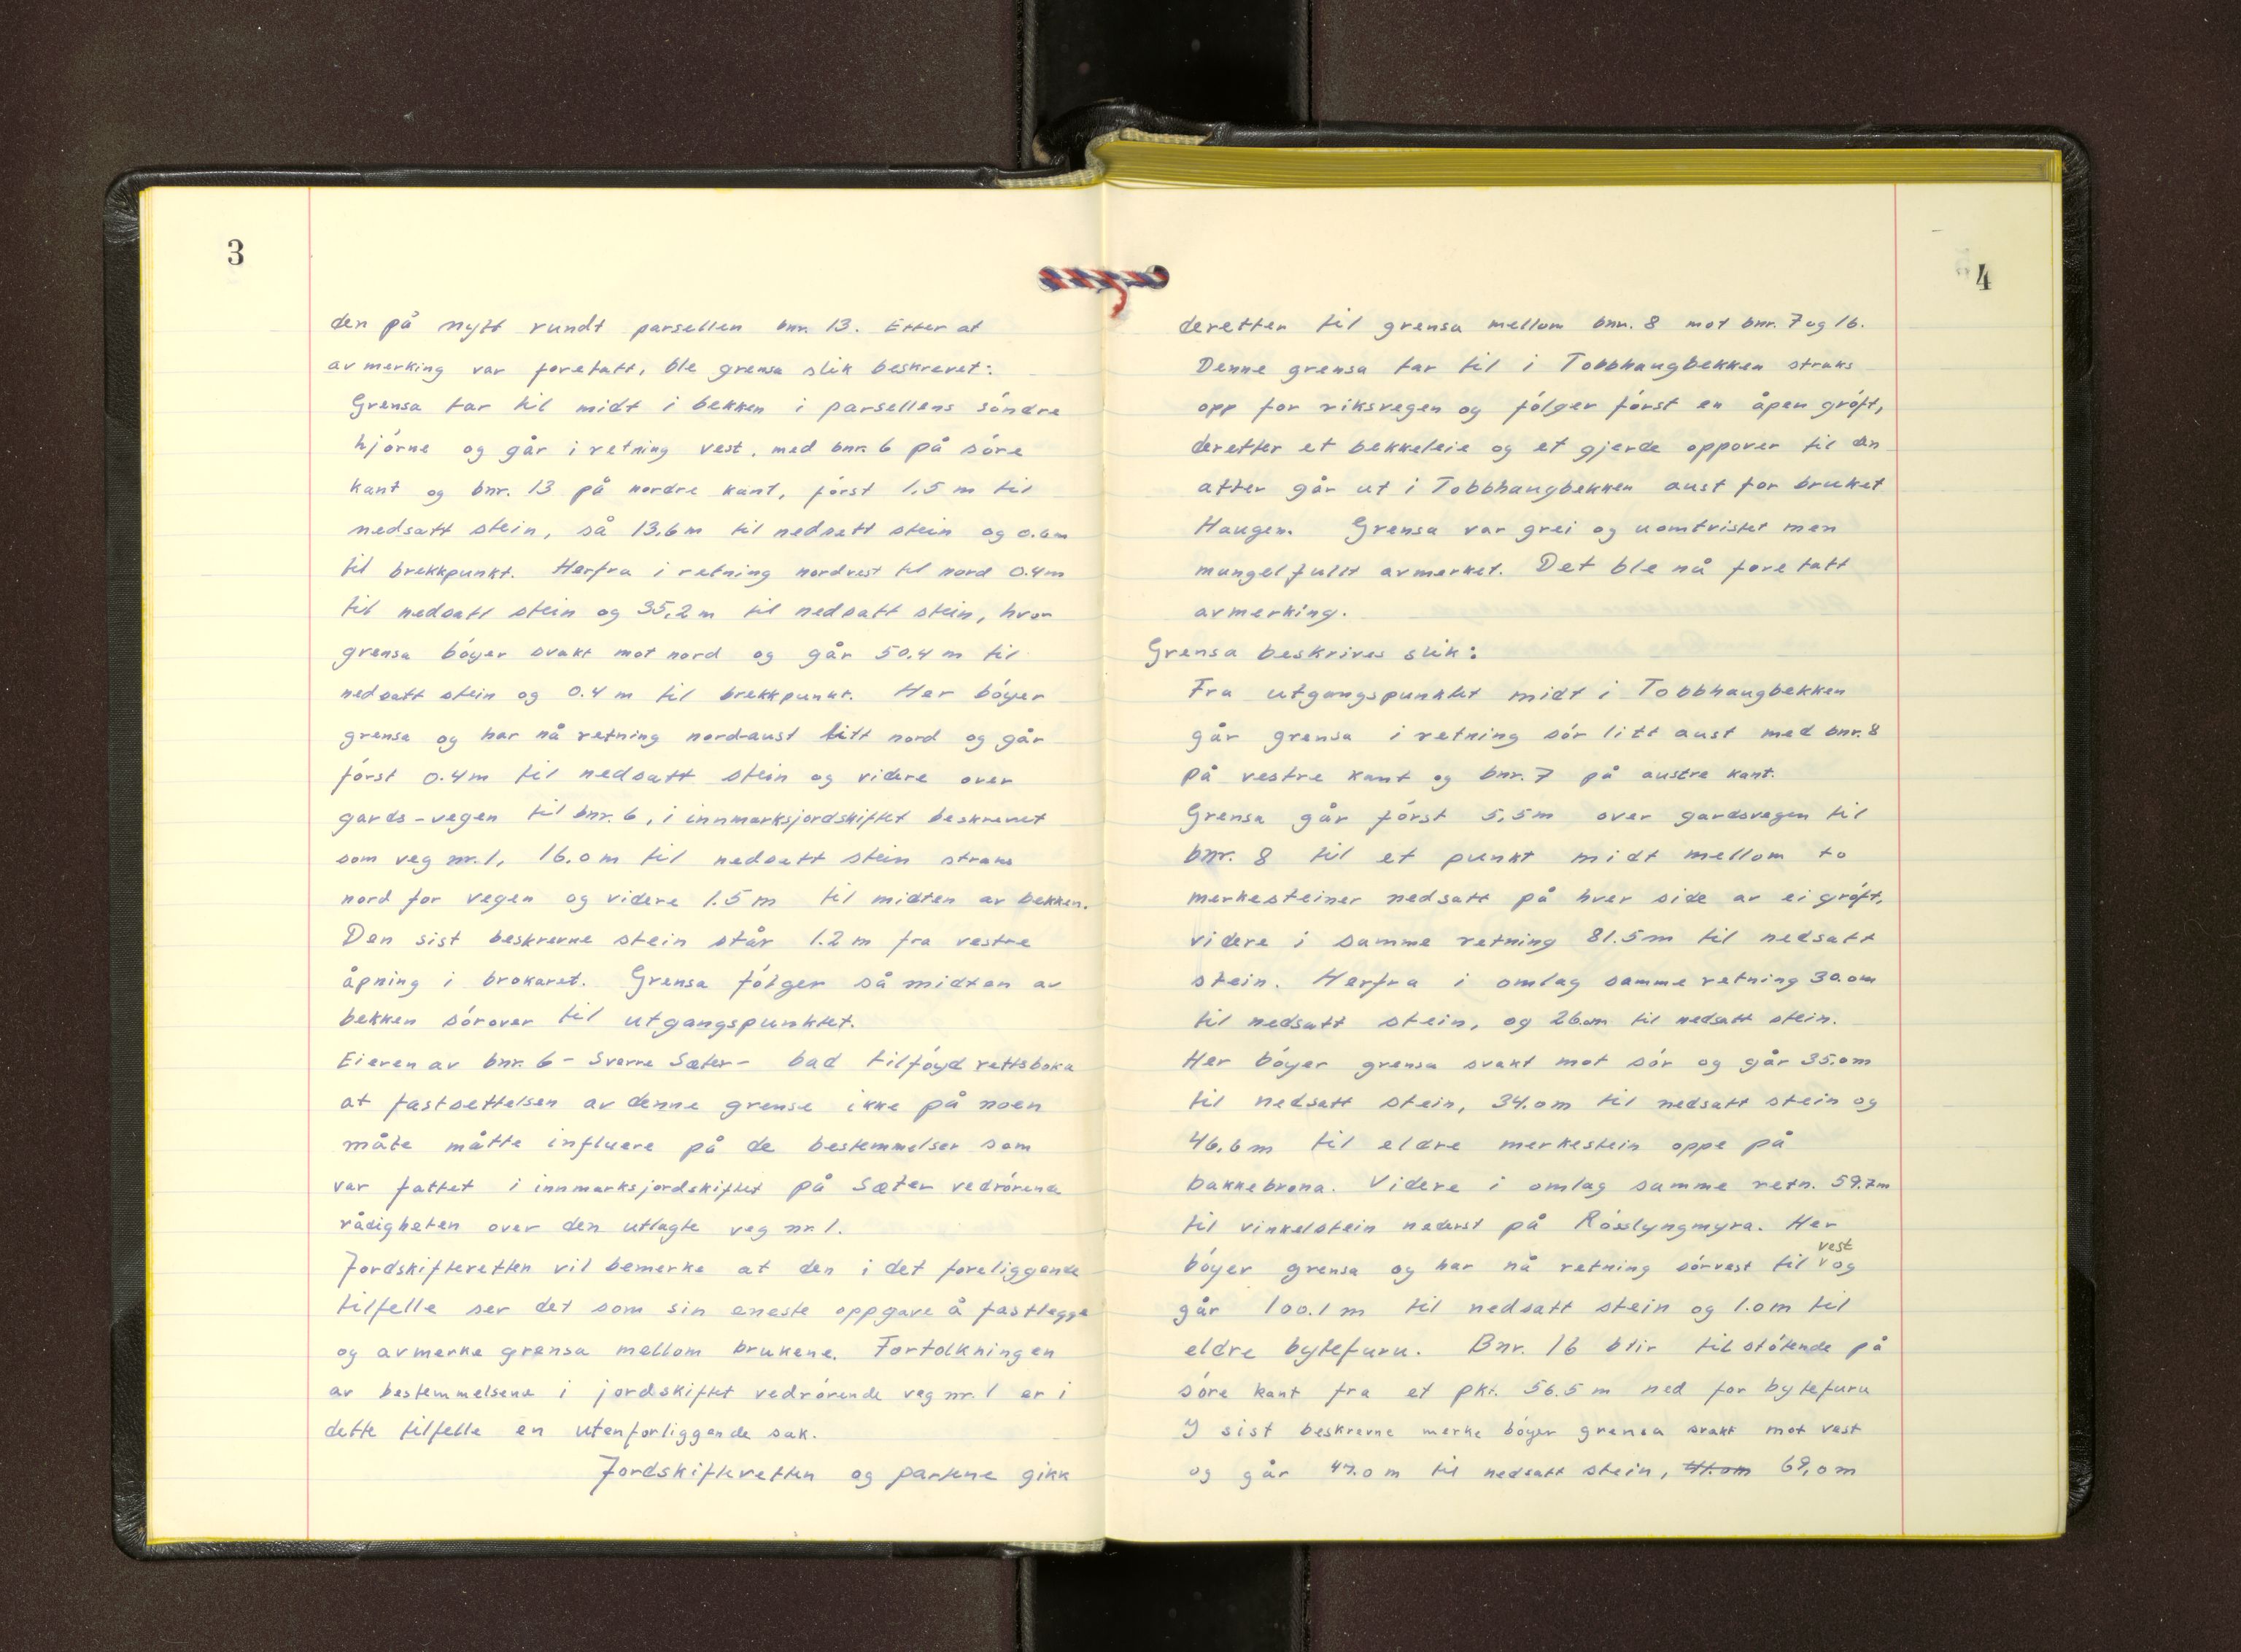 3
den på nytt rundt parsellen bnr. 13. Etter at
avmerking var foretatt, ble grensa slik beskrevet:
Grensa tar til midt i bekken i parsellens söndre
hjörne og går i retning vest, med bnr. 6 på söre
kant og bnr. 13 på nordre kant, först 1,5 m til
nedsatt stein, så 13,6 m til nedsatt stein og 0.6m
til brekkpunkt. Herfra i retning nordvest til nord 0.4m
til nedsatt stein og 35,2 m til nedsatt stein, hvor
grensa böyer svakt mot nord og går 50.4 m til
nedsatt stein og 0.4 m til brekkpunkt. Her böyer
grensa og har nå retning nord-aust litt nord og går
först 0.4m til nedsatt stein og videre over
gards-vegen til bnr. 6, i innmarksjordskiftet beskrevet
som veg nr. 1, 16.0 m til nedsatt stein straks
nord for vegen og videre 1.5 m til midten av bekken.
Den sist beskrevne stein står 1.2 m fra vestre
åpning i brokaret. Grensa fölger så midten av
bekken sörover til utgangspunktet.
Eieren av bnr. 6 - Sverre Sæter - bad tilföyd rettsboka
at fastsettelsen av denne grense ikke på noen
måte måtte influere på de bestemmelser som
var fattet i innmarksjordskiftet på Sæter vedrörende
rådigheten over den utlagte veg nr. 1.
Jordskifteretten vil bemerke at den i det foreliggende
tilfelle ser det som sin eneste oppgave å fastlegge
og avmerke grensa mellom brukene. Fortolkningen
av bestemmelsene i jordskiftet vedrörende veg nr. 1 er i
dette tilfelle en utenforliggende sak.
Jordskifteretten og partene gikk
4
deretter til grensa mellom bnr. 8 mot bnr. 7 og 16.
Denne grensa tar til i Tobbhaugbekken straks
opp for riksvegen og fölger först en åpen gröft,
deretter et bekkeleie og et gjerde oppover til den
atter går ut i Tobbhaugbekken aust for bruket
Haugen. Grensa var grei og uomtvistet men
mangelfullt avmerket. Det ble nå foretatt
avmerking.
Grensa beskrives slik:
Fra utgangspunktet midt i Tobbhaugbekken
går grensa i retning sör litt aust med bnr. 8
på vestre kant og bnr. 7 på austre kant.
Grensa går först 5,5m over gardsvegen til
bnr. 8 til et punkt midt mellom to
merkesteiner nedsatt på hver side av ei gröft,
videre i samme retning 81.5m til nedsatt
stein. Herfra i omlag samme retning 30.0m
til nedsatt stein, og 26.0m til nedsatt stein.
Her böyer grensa svakt mot sör og går 35.0m
til nedsatt stein, 34.0m til nedsatt stein og
46,6m til eldre merkestein oppe på
bakkebrona. Videre i omlag samme retn. 59.7m
til vinkelstein nederst på Rösslyngmyra. Her
böyer grensa og har nå retning sörvest til vest og
går 100.1 m til nedsatt stein og 1.0m til
eldre bytefuru. Bnr. 16 blir tilstötende på
söre kant fra et pkt. 56.5 m ned for bytefuru
I sist beskrevne merke böyer grensa svakt mot vest
og går 47.0 m til nedsatt stein, 69,0m